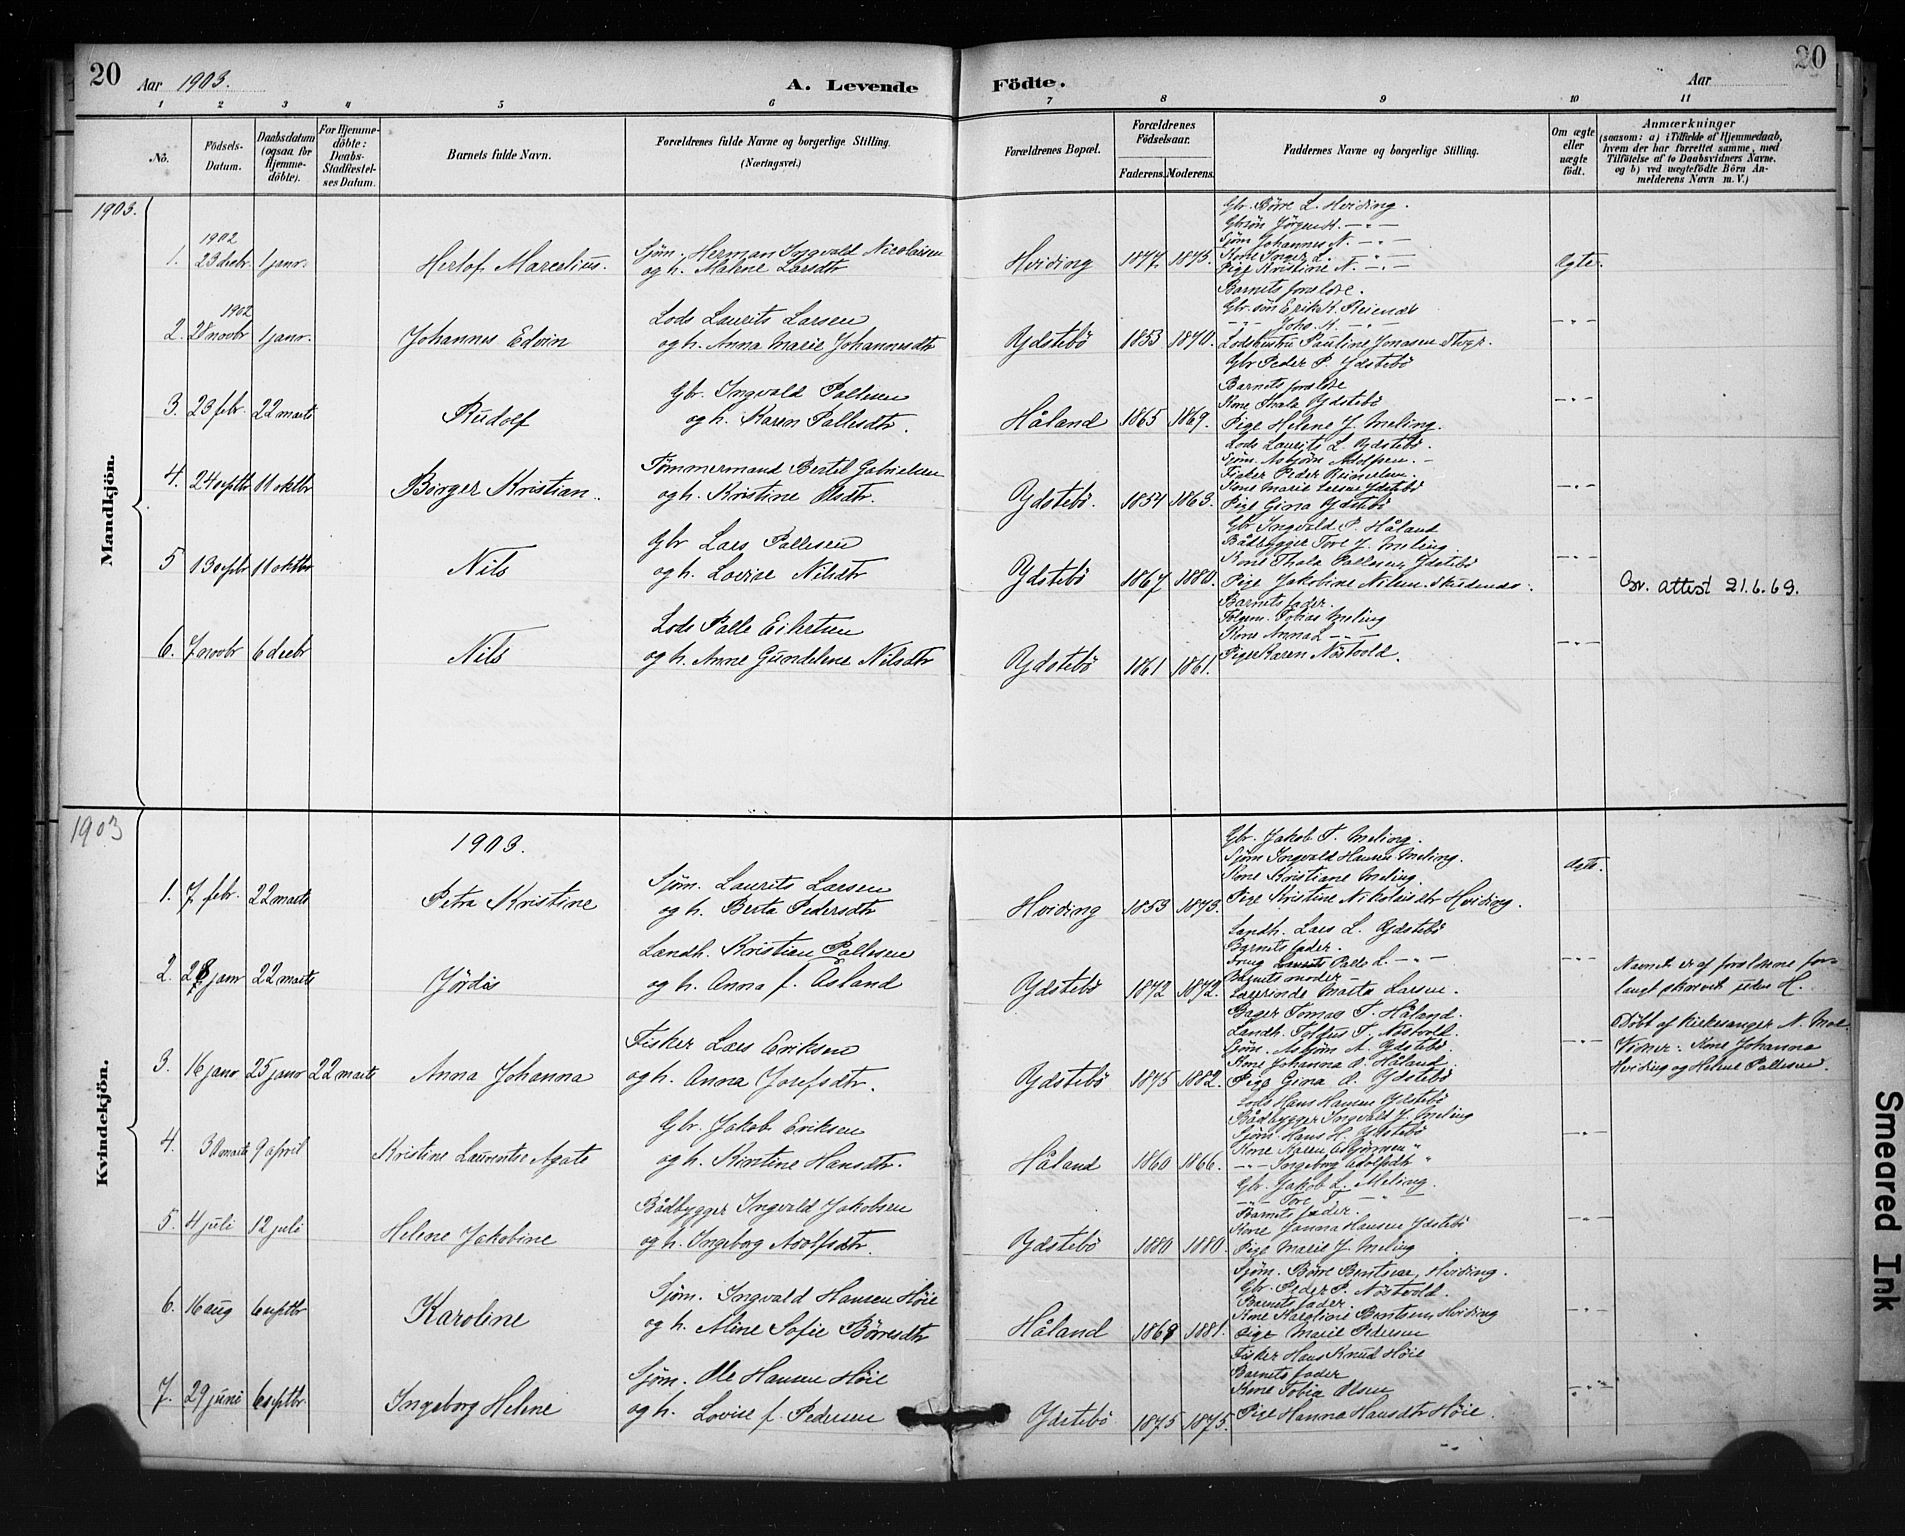 20
Aar 1903.
A. Levende
Födte.
Aar
20
1 2 3 4 5 6 7 8 9 10 11
No.
Födsels-
Datum.
Daabsdatum
(ogsaa for
Hjemme-
döbte).
For Hjemme-
döbte:
Daabs-
Stadfæstel-
ses Datum.
Barnets fulde Navn.
Forældrenes fulde Navne og borgerlige Stilling.
(Næringsvei.)
Forældrenes Bopæl.
Forældrenes
Födselsaar.
Faderens. Moderens.
Faddernes Navne og borgerlige Stilling.
Om ægte
eller
uægte
födt.
Anmærkninger
(saasom: a) i Tilfælde af Hjemmedaab,
hvem der har forrettet samme, med
Tilföielse af to Daabsvidners Navne,
og b) ved uægtefödte Börn An-
melderens Navn m. V.)
1903.
Mandkjön.
1. 1902 23 decbr. 1 janr.
Herlof Marselius.
Sjøm. Herman Ingvald Nicolaisen
og h. Malene Larsdtr
Hviding 1877. 1875.
Gbr. Børre L. Hviding.
Gbrsøn Jørgen H. -"-
Sjøm Johannes N. -"-
Kone Inger L. -"-
Pige Kristine N. -"-
Ægte.
2. 1902 28 novbr 1 janr.
Johannes Edvin
Lods Laurits Larsen
og h. Anna Marie Johannesdtr
Ydstebö 1853 1870.
Barnets forældre.
Gbr. søn Erik K. Reienæs
-"- Johs. K. -"-
Lodshustru Pauline Jonasen
Gbr Peder P. Ydstebö
-"-
3. 23 febr. 22 marts
Rudolf
Gbr. Ingvald Pallesen
og h. Karen Pallesdtr.
Håland 1865 1869.
Barnets forældre
Kone Thala Ydstebö
Pige Helene J. Meling.
Lods Laurits L. Ydstebö.
-"-
4. 24 septbr 11 oktbr
Börger Kristian.
Tømmermand Bertel Gabrielsen
og h. Kristine Olsdtr.
Ydstebö. 1854 1863.
Sjøm. Asbjørn Adolfsen. -
Fisker Peder Reiersen.
Kone Marie Larsen Ydstebö
Pige Gina Ydstebö
-"-
5 13 septbr 11 oktbr
Nils
Gbr Lars Pallesen
og h. Lovise Nilsdtr
Ydstebö 1867 1880.
Gbr Ingvald P. Håland
Bådbygger Tore J. Meling
Kone Thala Pallesen Ydstebö
Pige Jakobine Nilsen. Skudenæs.
Barnets fader.
-"-
Gv. attest 21.6.69.
6. 7 novbr 6 decbr
Nils
Lods Palle Eilertsen
og h. Anne Gundelene Nilsdtr
Ydstebö 1861 1861.
Tobias Meling
Kone Anna L. -"-
Pige Karen Nåstvold.
-"-
1903
Kvindekjön.
1903.
1. 7 febr. 22 marts
Petra Kristine
Sjøm. Laurits Larsen
og h. Berta Pedersdtr
Hviding 1853 1873.
Gbr. Jakob T. Meling.
Sjøm Ingvald Hansen Meling.
Kone Kristiane Meling.
Pige Kristine Nikolaisdtr Hviding.
Ægte.
2. 28 janr 22 marts
Jördis
Landh. Kristian Pallesen
og h. Anna f. Åsland
Ydstebö 1872 1872.
Landh. Lars L. Ydstebö
Barnets fader.
Palle L. -"-
Barnets moder
Lærerinde Marta Larsen.
-"-
Navnet er af forældrene for-
langt skrevet uden H.
3. 16 janr 25 janr 22 marts
Anna Johanna
Fisker Lars Eriksen
og h. Anna Josefsdtr.
Ydstebö 1875 1882.
Bager Tomas T. Håland.
Landh. Toldus T. Nåstvold.
Sjøm. Asbjørn A. Ydstebö.
Kone Johanna O. Håland.
Pige Gina O. Ydstebö
-"-
Döbt af kirkesanger N. Moe.
Vidner: Kone Johanna
Hviding og Helene Pallesen.
4. 30 marts 9 april
Kristine Laurentse Agate
Gbr. Jakob Eriksen
og h. Kirstine Hansdtr.
Håland 1860 1866.
Lods Hans Hansen Ydstebö
Bådbygger Ingvald J. Meling
Sjøm. Hans H. Ydstebö
Kone Karen Asbjörnsen "
-"- Ingeborg Adolfsdtr "
-"-
5. 4 juli 12 juli
Helene Jakobine
Bådbygger Ingvald Jakobsen
og h. Ingeborg Adolfsdtr.
Ydstebö 1880 1880.
Gbr. Jakob L. Meling.
-"- Tore T. "
Barnets fader.
Kone Janna Hansen Ydstebö
Pige Marie J. Meling
-"-
6. 16 aug 6 septbr
Karoline
Sjøm. Ingvald Hansen Höie
og h. Aline Sofie Börresdtr
Håland 1868 1881.
Sjøm. Börre Berntsen, Hviding.
Gbr. Peder P. Nåstvold.
Barnets fader.
Kone Karoline Berntsen, Hviding
Pige Marie Pedersen
-"-
7. 29 juni 6 septbr.
Ingeborg Helene
Sjøm. Ole Hansen Höie
og h. Lovise f. Pedersen
Ydstebö 1875 1875.
Fisker Hans Knud Höie
Barnets fader
Kone Tobia Olsen
Pige Hanna Hansdtr Höie.
-"-
Smeared Ink